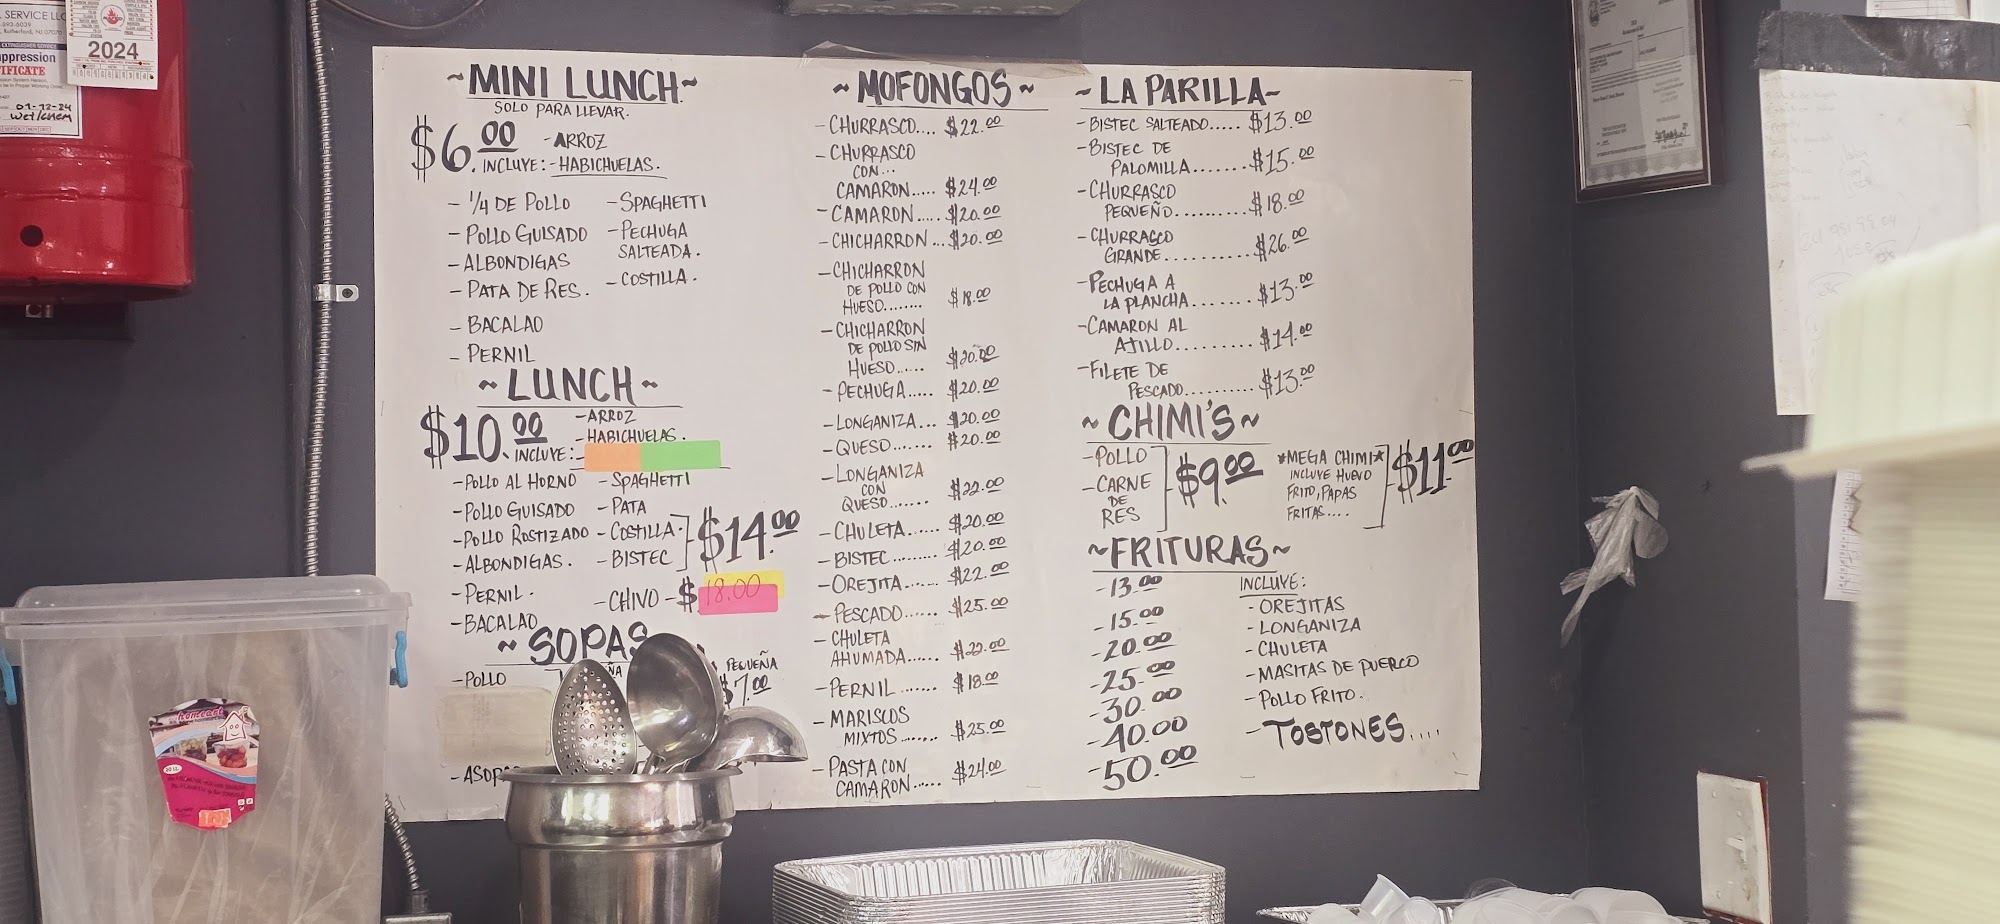 SERVICE LLC
2024
01-12-24
~MINI LUNCH~
SOLO PARA LLEVAR.
$6.00
INCLUYE: -ARROZ
-HABICHUELAS.
- 1/4 DE POLLO
- POLLO GUISADO
- ALBONDIGAS
- PATA DE RES.
- BACALAO
- PERNIL
- SPAGHETTI
- PECHUGA
SALTEADA.
- COSTILLA.
~LUNCH~
$10.00
INCLUYE: -ARROZ
-HABICHUELAS.
- POLLO AL HORNO
- POLLO GUISADO
- POLLO ROSTIZADO
- ALBONDIGAS.
- PERNIL.
- BACALAO
- SPAGHETTI
- PATA
- COSTILLA.
- BISTEC
$14.00
- CHIVO - $18.00
~SOPAS
- POLLO
PEQUEÑA
$7.00
~MOFONGOS~
- CHURRASCO.... $22.00
- CHURRASCO
CON...
CAMARON..... $24.00
- CAMARON..... $20.00
- CHICHARRON... $20.00
- CHICHARRON
DE POLLO CON
HUESO........ $18.00
- CHICHARRON
DE POLLO SIN
HUESO..... $20.00
- PECHUGA..... $20.00
- LONGANIZA... $20.00
- QUESO....... $20.00
- LONGANIZA
CON
QUESO....... $22.00
- CHULETA...... $20.00
- BISTEC......... $20.00
- OREJITA....... $22.00
- PESCADO...... $25.00
- CHULETA
AHUMADA...... $22.00
- PERNIL....... $18.00
- MARISCOS
MIXTOS....... $25.00
- PASTA CON
CAMARON...... $24.00
~LA PARILLA~
- BISTEC SALTEADO..... $13.00
- BISTEC DE
PALOMILLA....... $15.00
- CHURRASCO
PEQUEÑO.......... $18.00
- CHURRASCO
GRANDE.......... $26.00
- PECHUGA A
LA PLANCHA....... $13.00
- CAMARON AL
AJILLO......... $14.00
- FILETE DE
PESCADO.......... $13.00
~CHIMI'S~
- POLLO
- CARNE
DE
RES
$9.00
*MEGA CHIMI*
INCLUYE HUEVO
FRITO, PAPAS
FRITAS....
$11.00
~FRITURAS~
-13.00
-15.00
-20.00
-25.00
-30.00
-40.00
-50.00
INCLUYE:
- OREJITAS
- LONGANIZA
- CHULETA
- MASITAS DE PUERCO
- POLLO FRITO.
- TOSTONES....